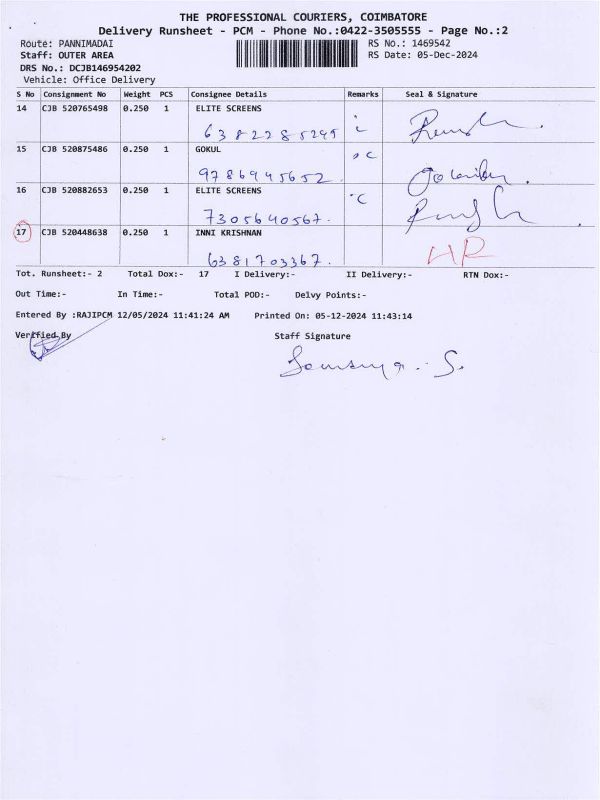 THE PROFESSIONAL COURIERS, COIMBATORE
Delivery Runsheet - PCM - Phone No.:0422-3505555 - Page No.:2
Route: PANNIMADAI RS No.: 1469542
Staff: OUTER AREA RS Date: 05-Dec-2024
DRS No.: DCJB146954202
Vehicle: Office Delivery
S No Consignment No Weight PCS Consignee Details Remarks Seal & Signature
14 CJB 520765498 0.250 1 ELITE SCREENS
6382285295
15 CJB 520875486 0.250 1 GOKUL
9786945652
16 CJB 520882653 0.250 1 ELITE SCREENS
7305640567
17 CJB 520448638 0.250 1 INNI KRISHNAN
6381703367 HR
Tot. Runsheet:- 2 Total Dox:- 17 I Delivery:- II Delivery:- RTN Dox:-
Out Time:- In Time:- Total POD:- Delvy Points:-
Entered By :RAJIPCM 12/05/2024 11:41:24 AM Printed On: 05-12-2024 11:43:14
Verified By Staff Signature